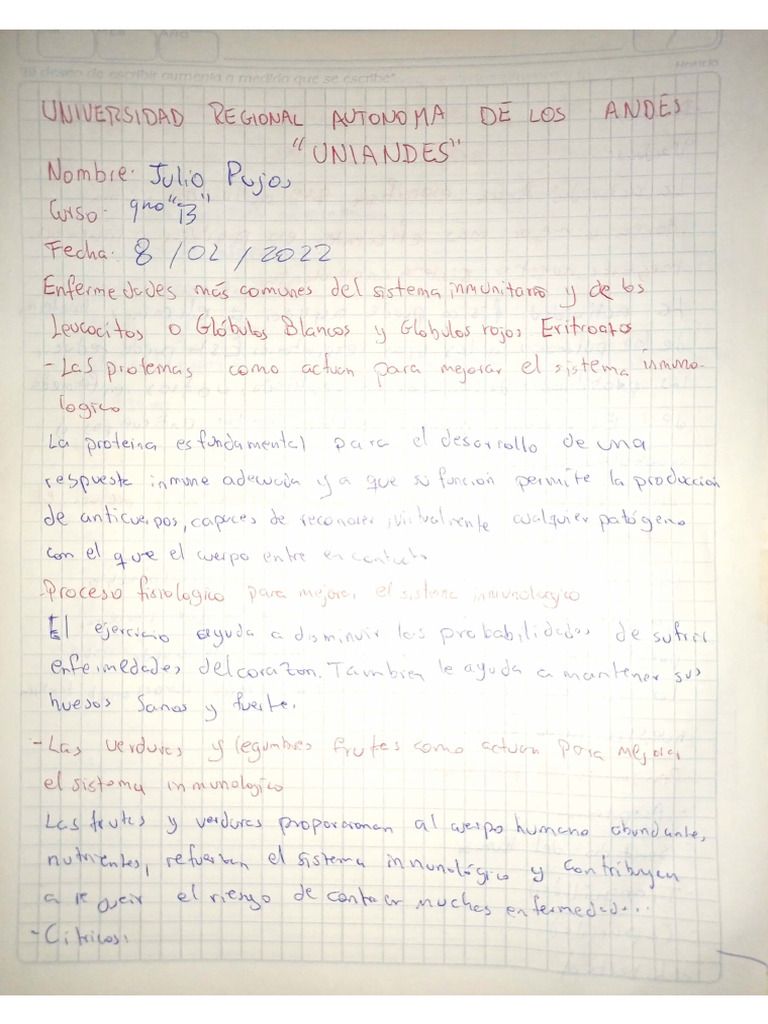 Año
"El deseo de escribir aumenta a medida que se escribe"
UNIVERSIDAD REGIONAL AUTONOMA DE LOS ANDES
"UNIANDES"
Nombre: Julio Pujos
Curso: 9no "B"
Fecha: 8/02/2022
Enfermedades más comunes del sistema inmunitario y de los
Leucocitos o Glóbulos Blancos y Globulos rojos Eritrocitos
- Las protemas como actuan para mejorar el sistema inmuno-
logico
La proteina es fundamental para el desarrollo de una
respuesta inmune adecuada y a que su funcion permite la producción
de anticuerpos, capaces de reconocer, virtualmente cualquier patógeno
con el que el cuerpo entre en contacto
- Proceso fisiologico para mejorar el sistema inmunologico
El ejercicio ayuda a disminuir las probabilidades de sufrir
enfermedades del corazon. Tambien le ayuda a mantener sus
huesos Sanos y fuerte.
- Las verduras y legumbres frutas como actuan para mejorar
el sistema inmunologico
Las frutas y verduras proporcionan al cuerpo humano abundante,
nutrientes, refuerzan el sistema inmunológico y contribuyen
a el riesgo de contraer muchas enfermedad...
- Citricos: